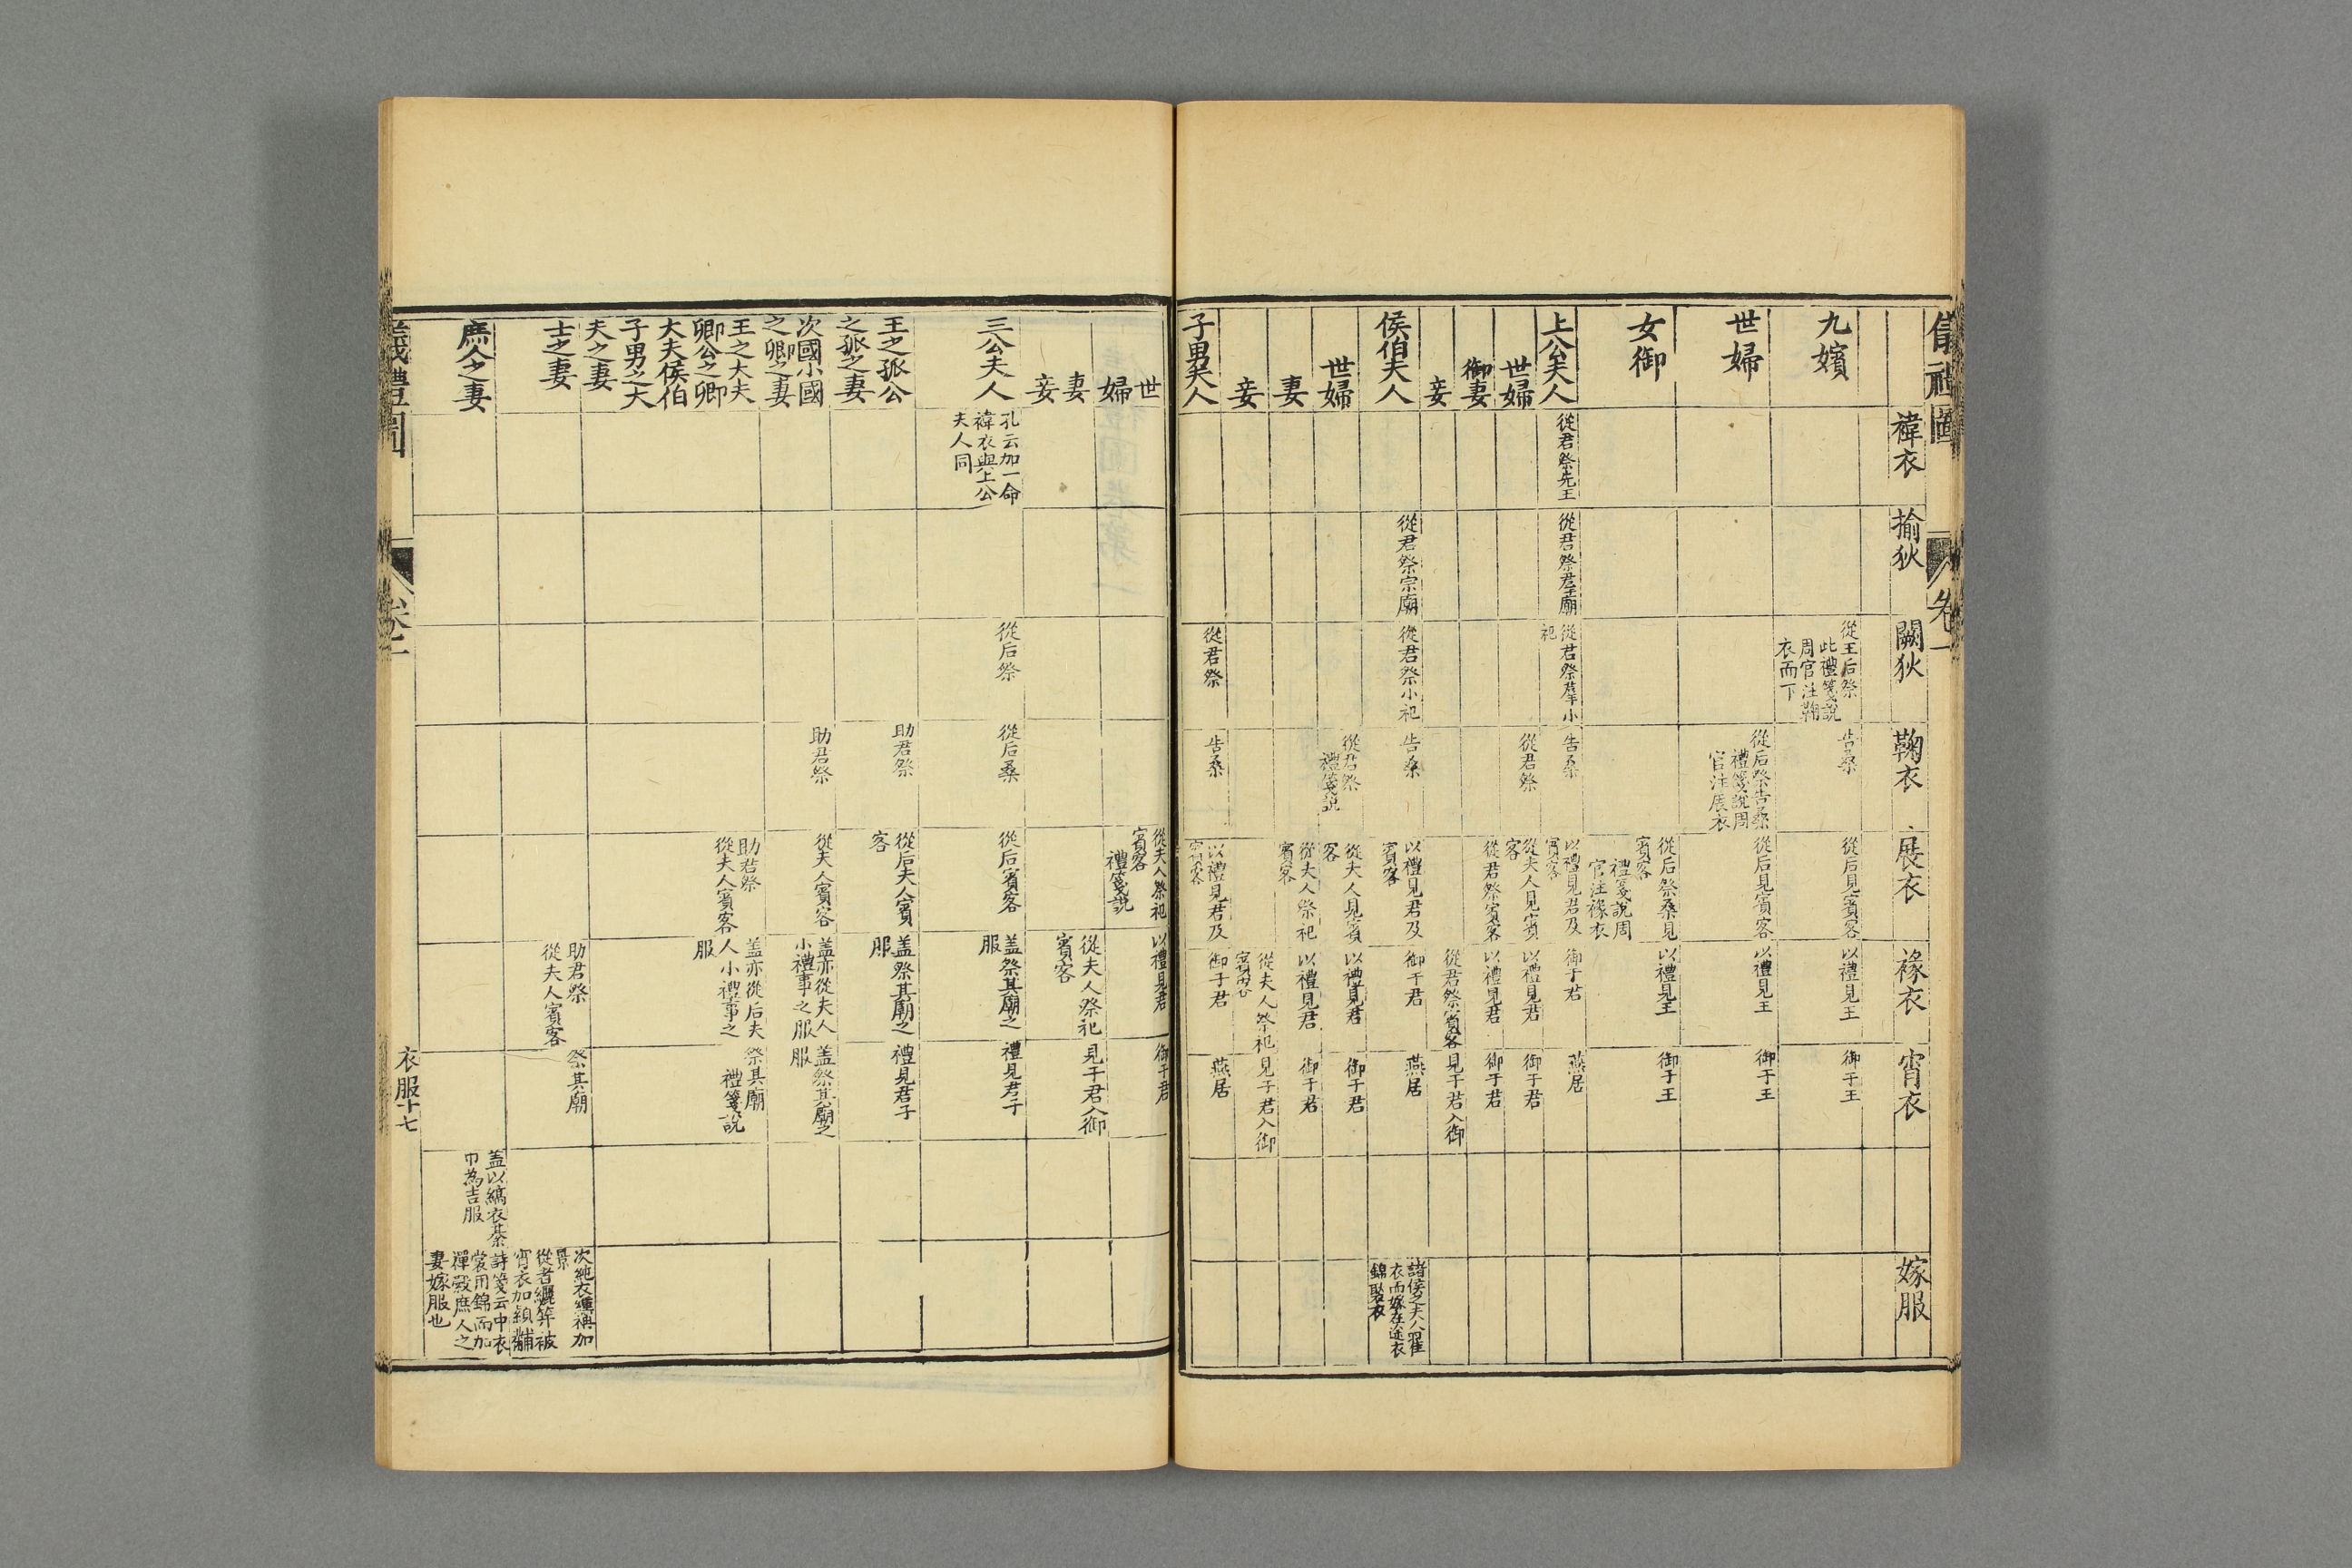 儀禮圖
卷一
褘衣
揄狄
闕狄
鞠衣
展衣
褖衣
宵衣
嫁服
九嬪
從王后祭
此禮箋說
周官注鞠
衣而下
告桑
從后見賓客
以禮見王
御于王
世婦
從后祭告桑
禮箋說周
官注展衣
從后見賓客
以禮見王
御于王
女御
從后祭桑見
賓客
禮箋說周
官注褖衣
以禮見王
御于王
上公夫人
從君祭先王
從君祭君王廟
從君祭羣小
祀
告桑
以禮見君及
賓客
御于君
燕居
世婦
從君祭
從夫人見賓
客
以禮見君
御于君
御妻
從君祭賓客
以禮見君
御于君
妾
從君祭賓客
見于君入御
侯伯夫人
從君祭宗廟
從君祭小祀
告桑
以禮見君及
賓客
御于君
燕居
諸侯之夫人翟
衣而嫁在塗衣
錦褧衣
世婦
從君祭
禮箋說
從夫人見賓
客
以禮見君
御于君
妻
從夫人祭祀
賓客
以禮見君
御于君
妾
從夫人祭祀
賓客
見于君入御
子男夫人
從君祭
告桑
以禮見君及
賓客
御于君
燕居
世
婦
從夫人祭祀
賓客
禮箋說
以禮見君
御于君
妻
妾
從夫人祭祀
賓客
見于君入御
三公夫人
孔云加一命
褘衣與上公
夫人同
從后祭
從后桑
從后賓客
盖祭其廟之
服
禮見君子
王之孤公
之孤之妻
助君祭
從后夫人賓
客
盖祭其廟之
服
禮見君子
次國小國
之卿之妻
助君祭
從夫人賓客
盖亦從夫人
小禮事之服
盖祭其廟之
服
王之大夫
卿公之卿
大夫侯伯
子男之大
夫之妻
助君祭
從夫人賓客
盖亦從后夫
人小禮事之
服
祭其廟
禮箋說
士之妻
助君祭
從夫人賓客
祭其廟
次純衣纁袡加
景
從者纚笄被
宵衣加潁黼
庶人之妻
盖以縞衣綦
巾為吉服
詩箋云中衣
裳用錦而加
襌縠庶人之
妻嫁服也
儀禮圖
卷一
衣服十七